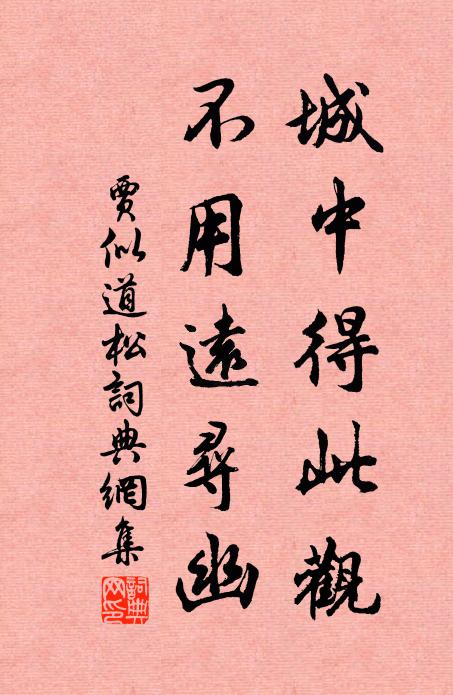 城中得此觀
不用遠尋幽
賈似道松詞典網集
詞典網印